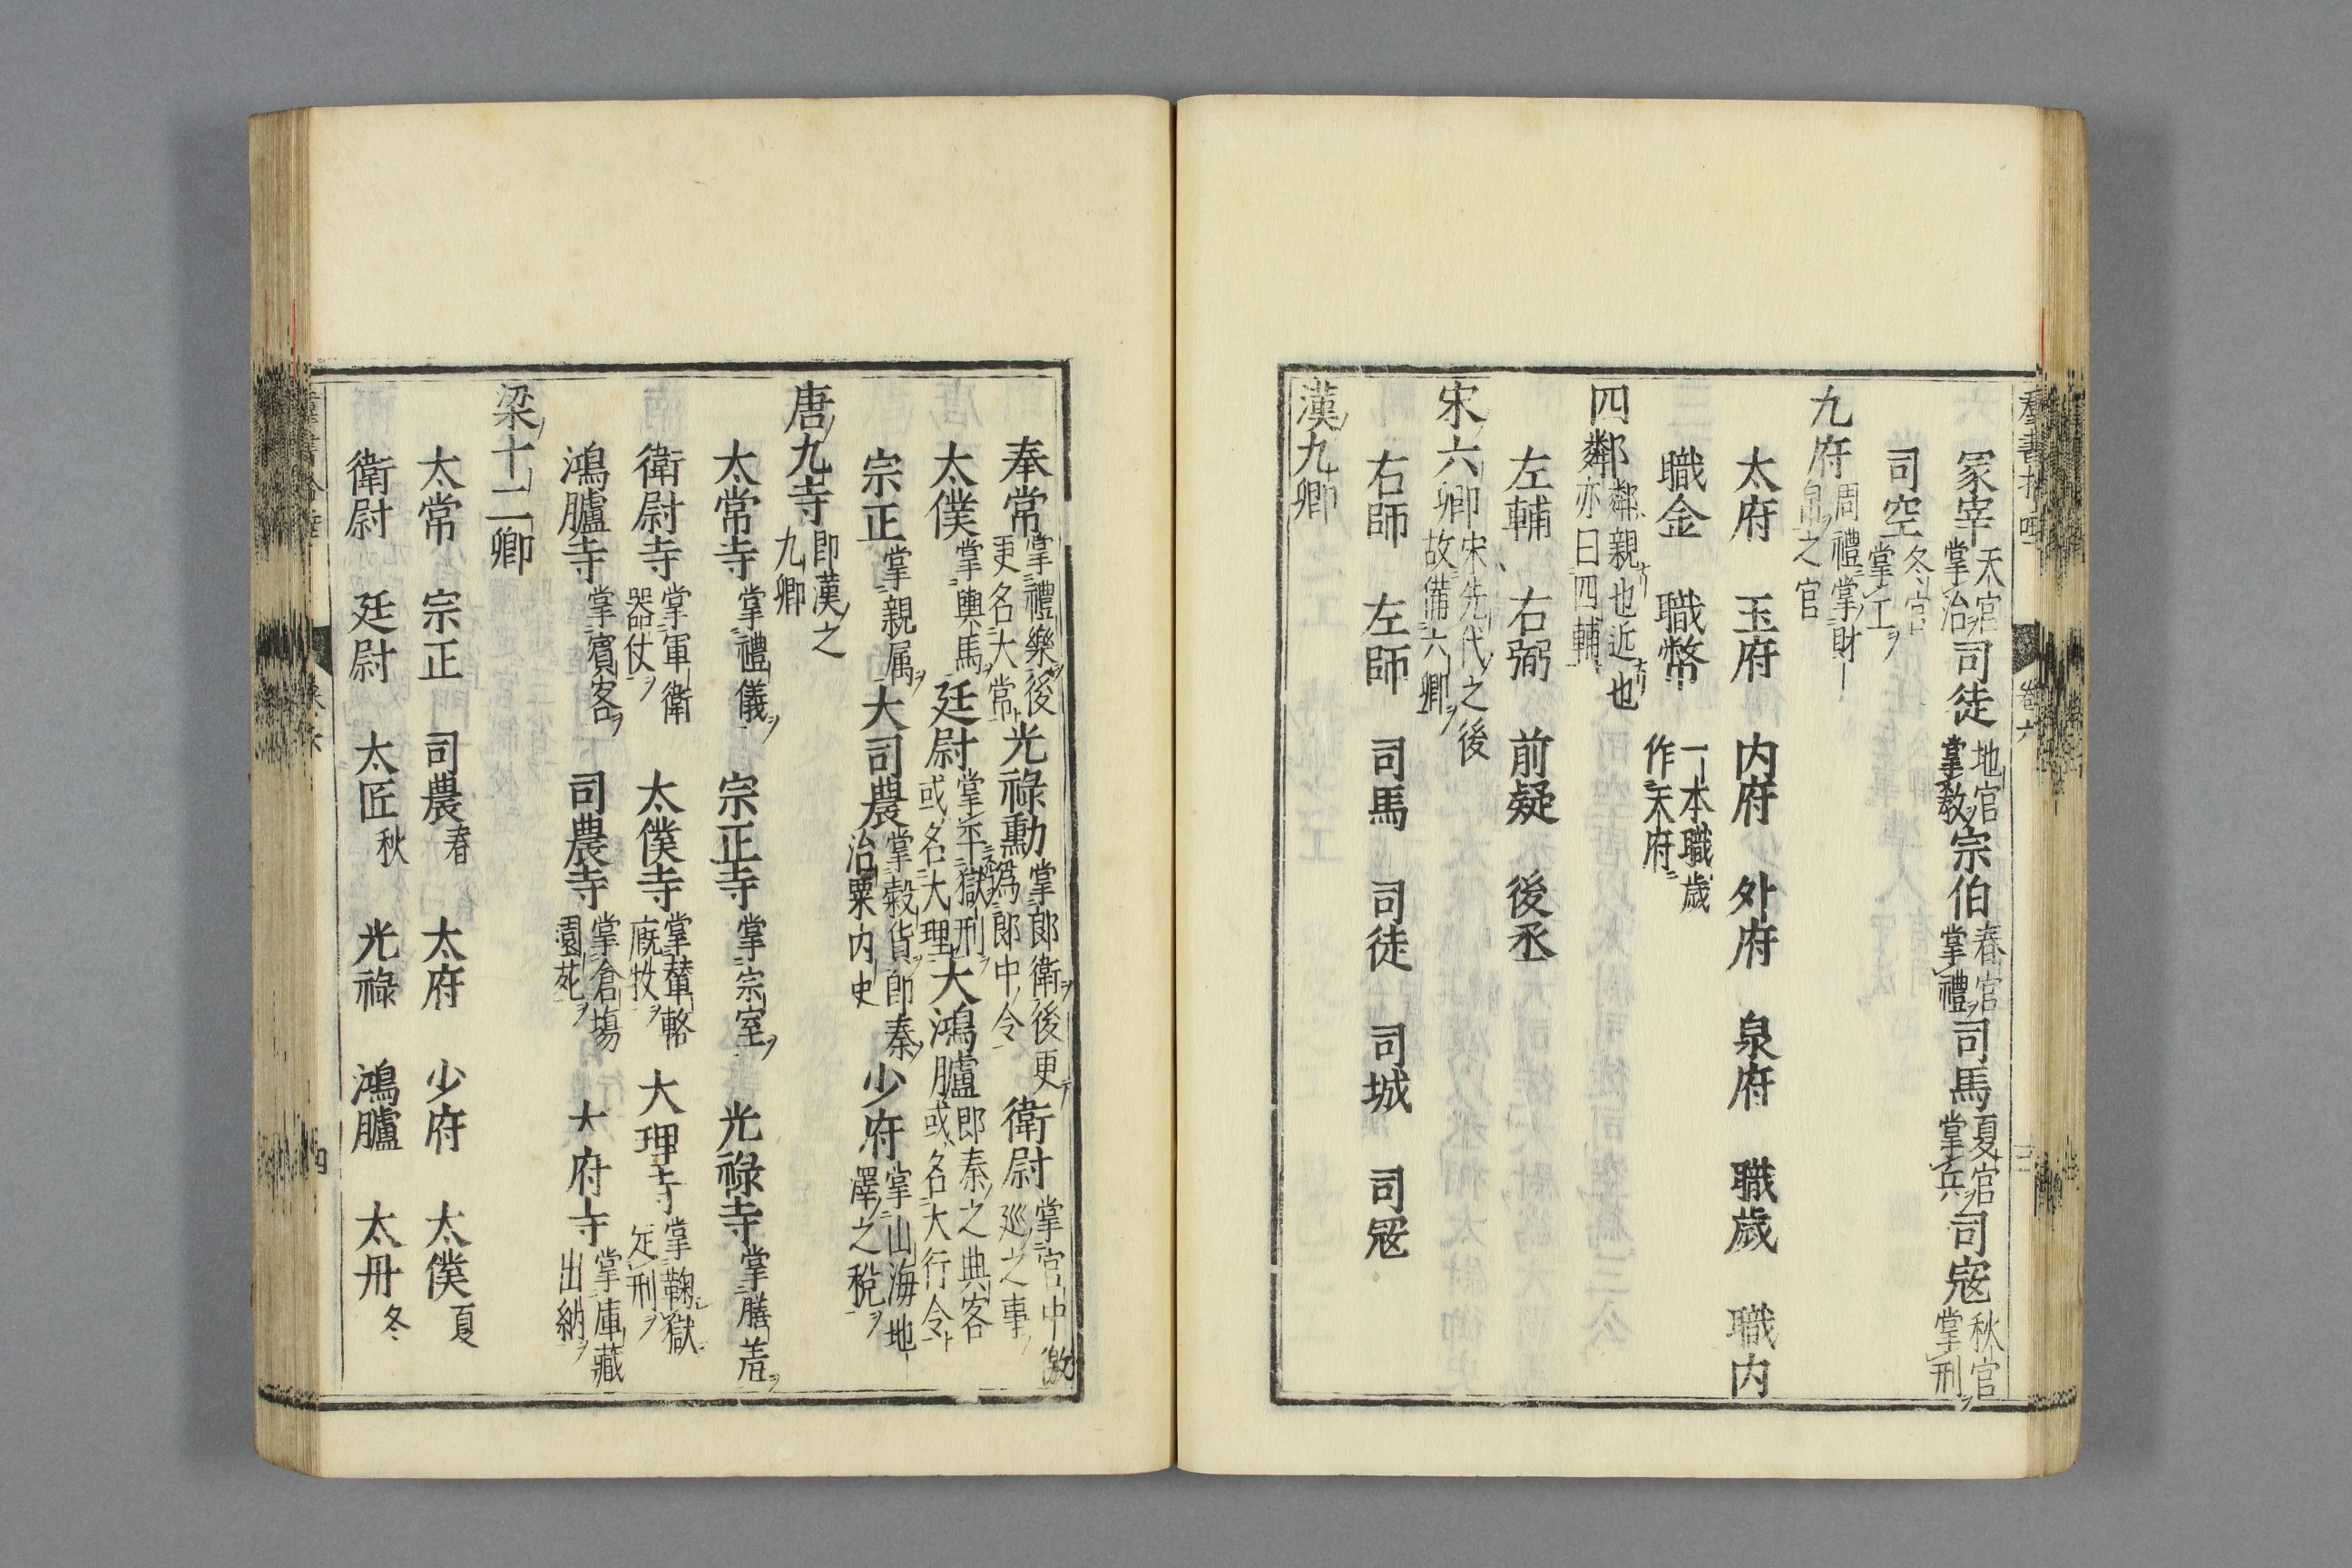 冢宰天官掌治司徒地官掌教宗伯春官掌禮司馬夏官掌兵司寇秋官掌刑
司空冬官掌工
九府周禮掌財帛之官
太府 玉府 内府 外府 泉府 職歲 職内
職金 職幣一本職歲作天府
四鄰鄰親也近也亦曰四輔
左輔 右弼 前疑 後丞
宋六卿宋先代之後故備六卿
右師 左師 司馬 司徒 司城 司寇
漢九卿
奉常掌禮樂後更名大常光祿勳掌郎衛後更爲郎中令 衛尉掌宮中徼巡之事
太僕掌輿馬廷尉掌平獄刑或名大理大鴻臚即秦之典客或名大行令
宗正掌親属大司農掌榖貨即秦治粟内史少府掌山海地澤之稅
唐九寺即漢之九卿
太常寺掌禮儀 宗正寺掌宗室 光祿寺掌膳羞
衛尉寺掌軍衛器仗 太僕寺掌輦輅廐牧 大理寺掌鞠獄定刑
鴻臚寺掌賓客 司農寺掌倉場園苑 大府寺掌庫藏出納
梁十二卿
太常 宗正 司農春 太府 少府 太僕夏
衛尉 廷尉 太匠秋 光祿 鴻臚 太舟冬
卷六
四